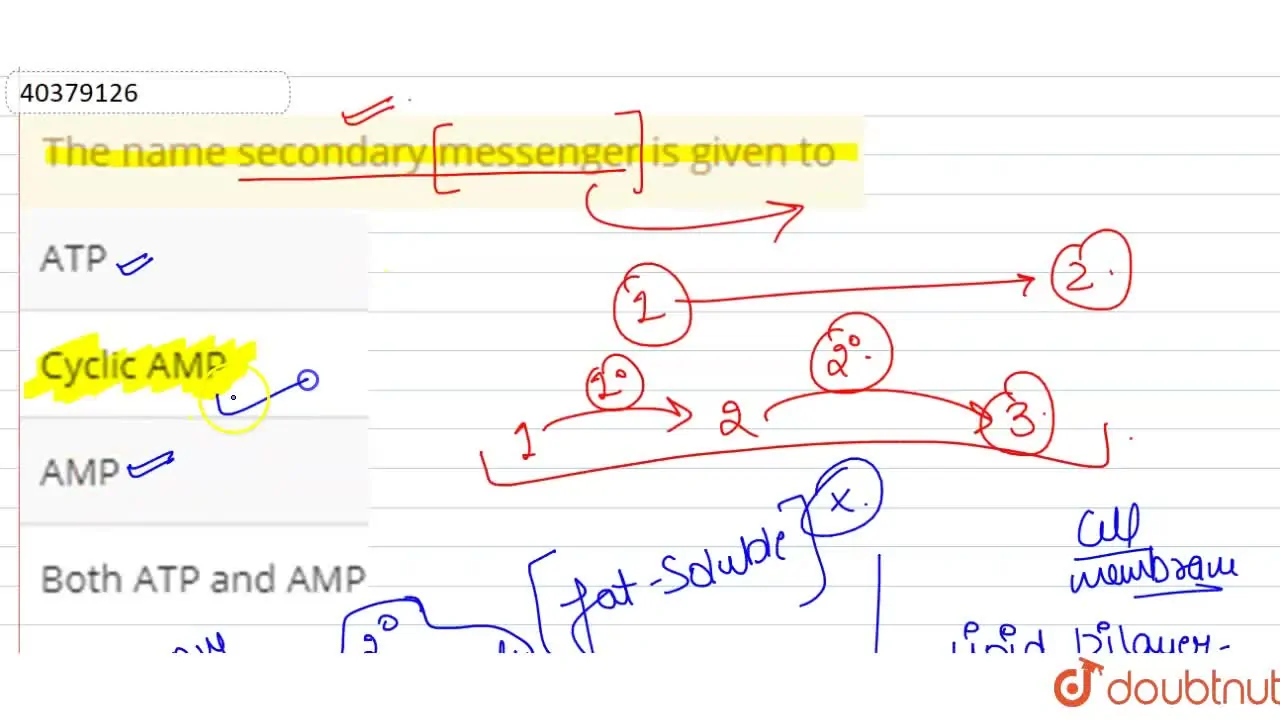 40379126
The name secondary [messenger] is given to
ATP
2.
1
Cyclic AMP
2°.
1°
1 2 3.
AMP
x.
fat-soluble
Cell
membrane
Both ATP and AMP
2°
Lipid bilayer-
doubtnut